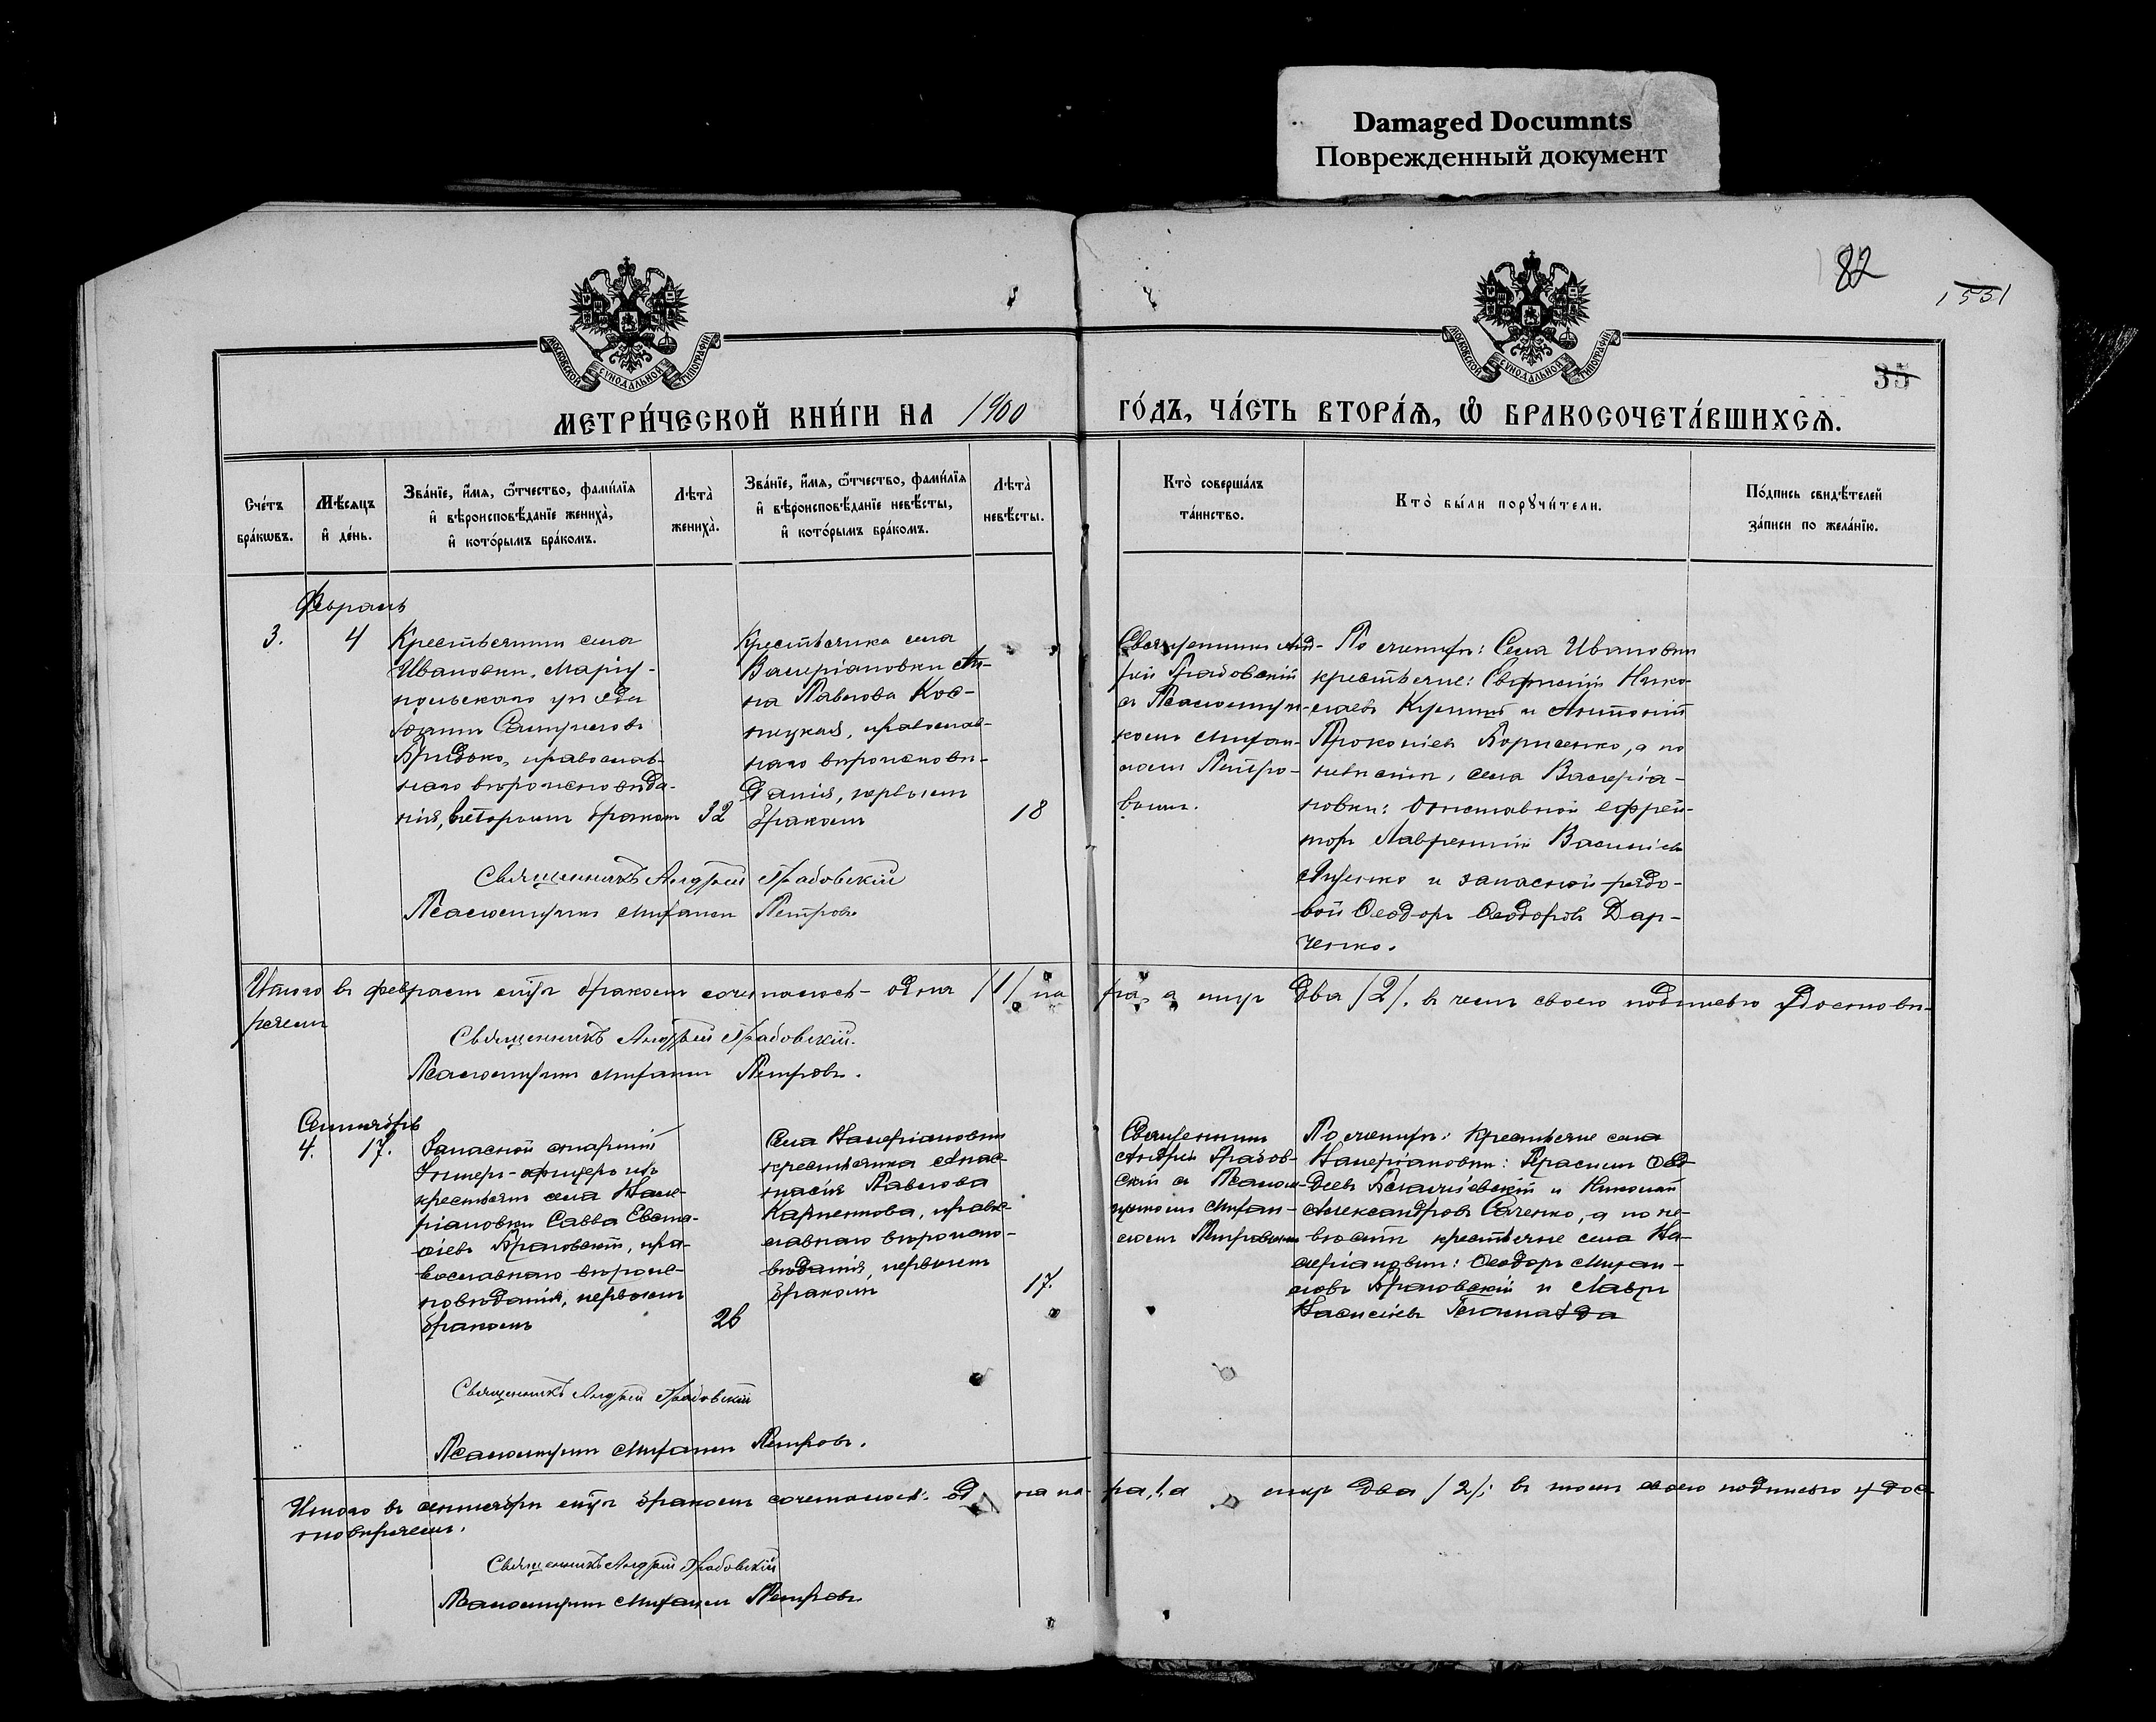 Damaged Documnts
Поврежденный документ
82
1531
35
МОСКОВСКОЙ СѴНОДАЛЬНОЙ ТИПОГРАФІИ
МОСКОВСКОЙ СѴНОДАЛЬНОЙ ТИПОГРАФІИ
МЕТРИ́ЧЕСКОЙ КНИ́ГИ НА 1900
ГО́ДЪ, ЧА́СТЬ ВТОРА́Я, Ѡ БРАКОСОЧЕТА́ВШИХСѦ.
Сче́тъ бра́кѡвъ.
Мѣ́сяцъ и҆ де́нь.
Зва́нїе, и҆́мя, ѻ҆́тчество, фамѝлїя
и҆ вѣроисповѣ́данїе жениха̀,
и҆ кото́рымъ бра́комъ.
Лѣта̀
жениха̀.
Зва́нїе, и҆́мя, ѻ҆́тчество, фамѝлїя
и҆ вѣроисповѣ́данїе невѣ́сты,
и҆ кото́рымъ бра́комъ.
Лѣта̀
невѣ́сты.
Кто̀ соверша́лъ
та́инство.
Кто̀ бы́ли порꙋчи́тели.
По́дпись свидѣ́телей
за́писи по жела́нїю.
Февраль
3.
4
Крестьянинъ села
Ивановки, Маріу-
польскаго уѣзда
Іоаннъ Самуиловъ
Бридько, православ-
наго вѣроисповѣда-
нія, вторымъ бракомъ
32
Крестьянка села
Валеріановки Ан-
на Павлова Кос-
ницкая, православ-
наго вѣроисповѣ-
данія, первымъ
бракомъ
18
Священникъ Анд-
рей Грабовскій
съ Псаломщи-
комъ Михаи-
ломъ Петро-
вымъ.
По женихѣ: Села Ивановки
крестьяне: Евгеній Нико-
лаевъ Куцый и Антоній
Прокопіевъ Борисенко, а по
невѣстѣ, села Валеріа-
новки: Отставной ефрей-
торъ Лаврентій Василіевъ
Яценко и запасной рядо-
вой Ѳеодоръ Ѳеодоровъ Дар-
ченко.
Священникъ Андрей Грабовскій
Псаломщикъ Михаилъ Петровъ
Итого въ февралѣ мѣсяцѣ бракомъ сочеталось одна /1/ па
ра, а лицъ два /2/. въ чемъ своею подписью удостовѣ-
ряемъ
Священникъ Андрей Грабовскій.
Псаломщикъ Михаилъ Петровъ.
Сентябрь
4.
17.
Запасной старшій
Унтеръ-офицеръ изъ
крестьянъ села Вале-
ріановки Савва Евста-
ѳіевъ Браговскій, пра-
вославнаго вѣроис-
повѣданія, первымъ
бракомъ
26
Села Валеріановки
крестьянка Анас-
тасія Павлова
Карпенкова, право-
славнаго вѣроиспо-
вѣданія, первымъ
бракомъ
17.
Священникъ
Андрей Грабов-
скій съ Псалом-
щикомъ Михаи-
ломъ Петровымъ
По женихѣ: Крестьяне села
Валеріановки: Герасимъ Ѳад-
деевъ и Николай
Александровъ Саченко, а по не-
вѣстѣ крестьяне села Ва-
леріановки: Ѳеодоръ Михаи-
ловъ Браговскій и Лавръ
Василіевъ
Священникъ Андрей Грабовскій
Псаломщикъ Михаилъ Петровъ.
Итого въ сентябрѣ мѣсяцѣ бракомъ сочеталось: од на па-
ра, а лицъ два /2/; въ чемъ своею подписью удос
товѣряемъ.
Священникъ Андрей Грабовскій
Псаломщикъ Михаилъ Петровъ